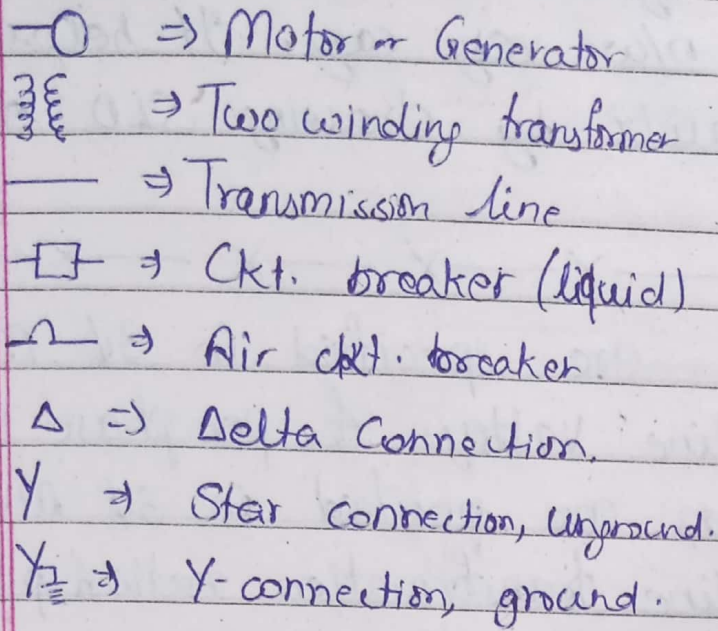 ⇒ Motor or Generator
⇒ Two winding transformer
⇒ Transmission line
⇒ Ckt. breaker (liquid)
⇒ Air ckt. breaker.
Δ ⇒ Delta Connection.
Y ⇒ Star connection, unground.
Y ⇒ Y-connection, ground.